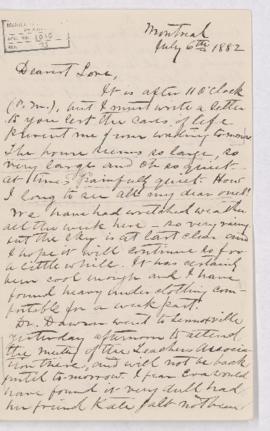 Montreal
July 6th 1882
Dearest Love,
It is after 11 O'Clock
(P.M.), but I must write a letter
to you lest the cares of life
prevent me from writing tomorrow
The house seems so large, so
very large and oh so quiet.
at times painfully quiet. How
I long to see all my dear ones!
We have had wretched weather
all the week here - so very rainy
but the sky is at last clear and
I hope it will continue so for
a little while. It has certainly
been cool enough and I have
found heavy under clothing com-
fortable for a week past
Dr. Dawson went to
yesterday afternoon to attend
the meeting of the Teachers Associa-
tion there, and will not be back
until tomorrow. I fear Eva would
have found it very dull had
she found Kate not been